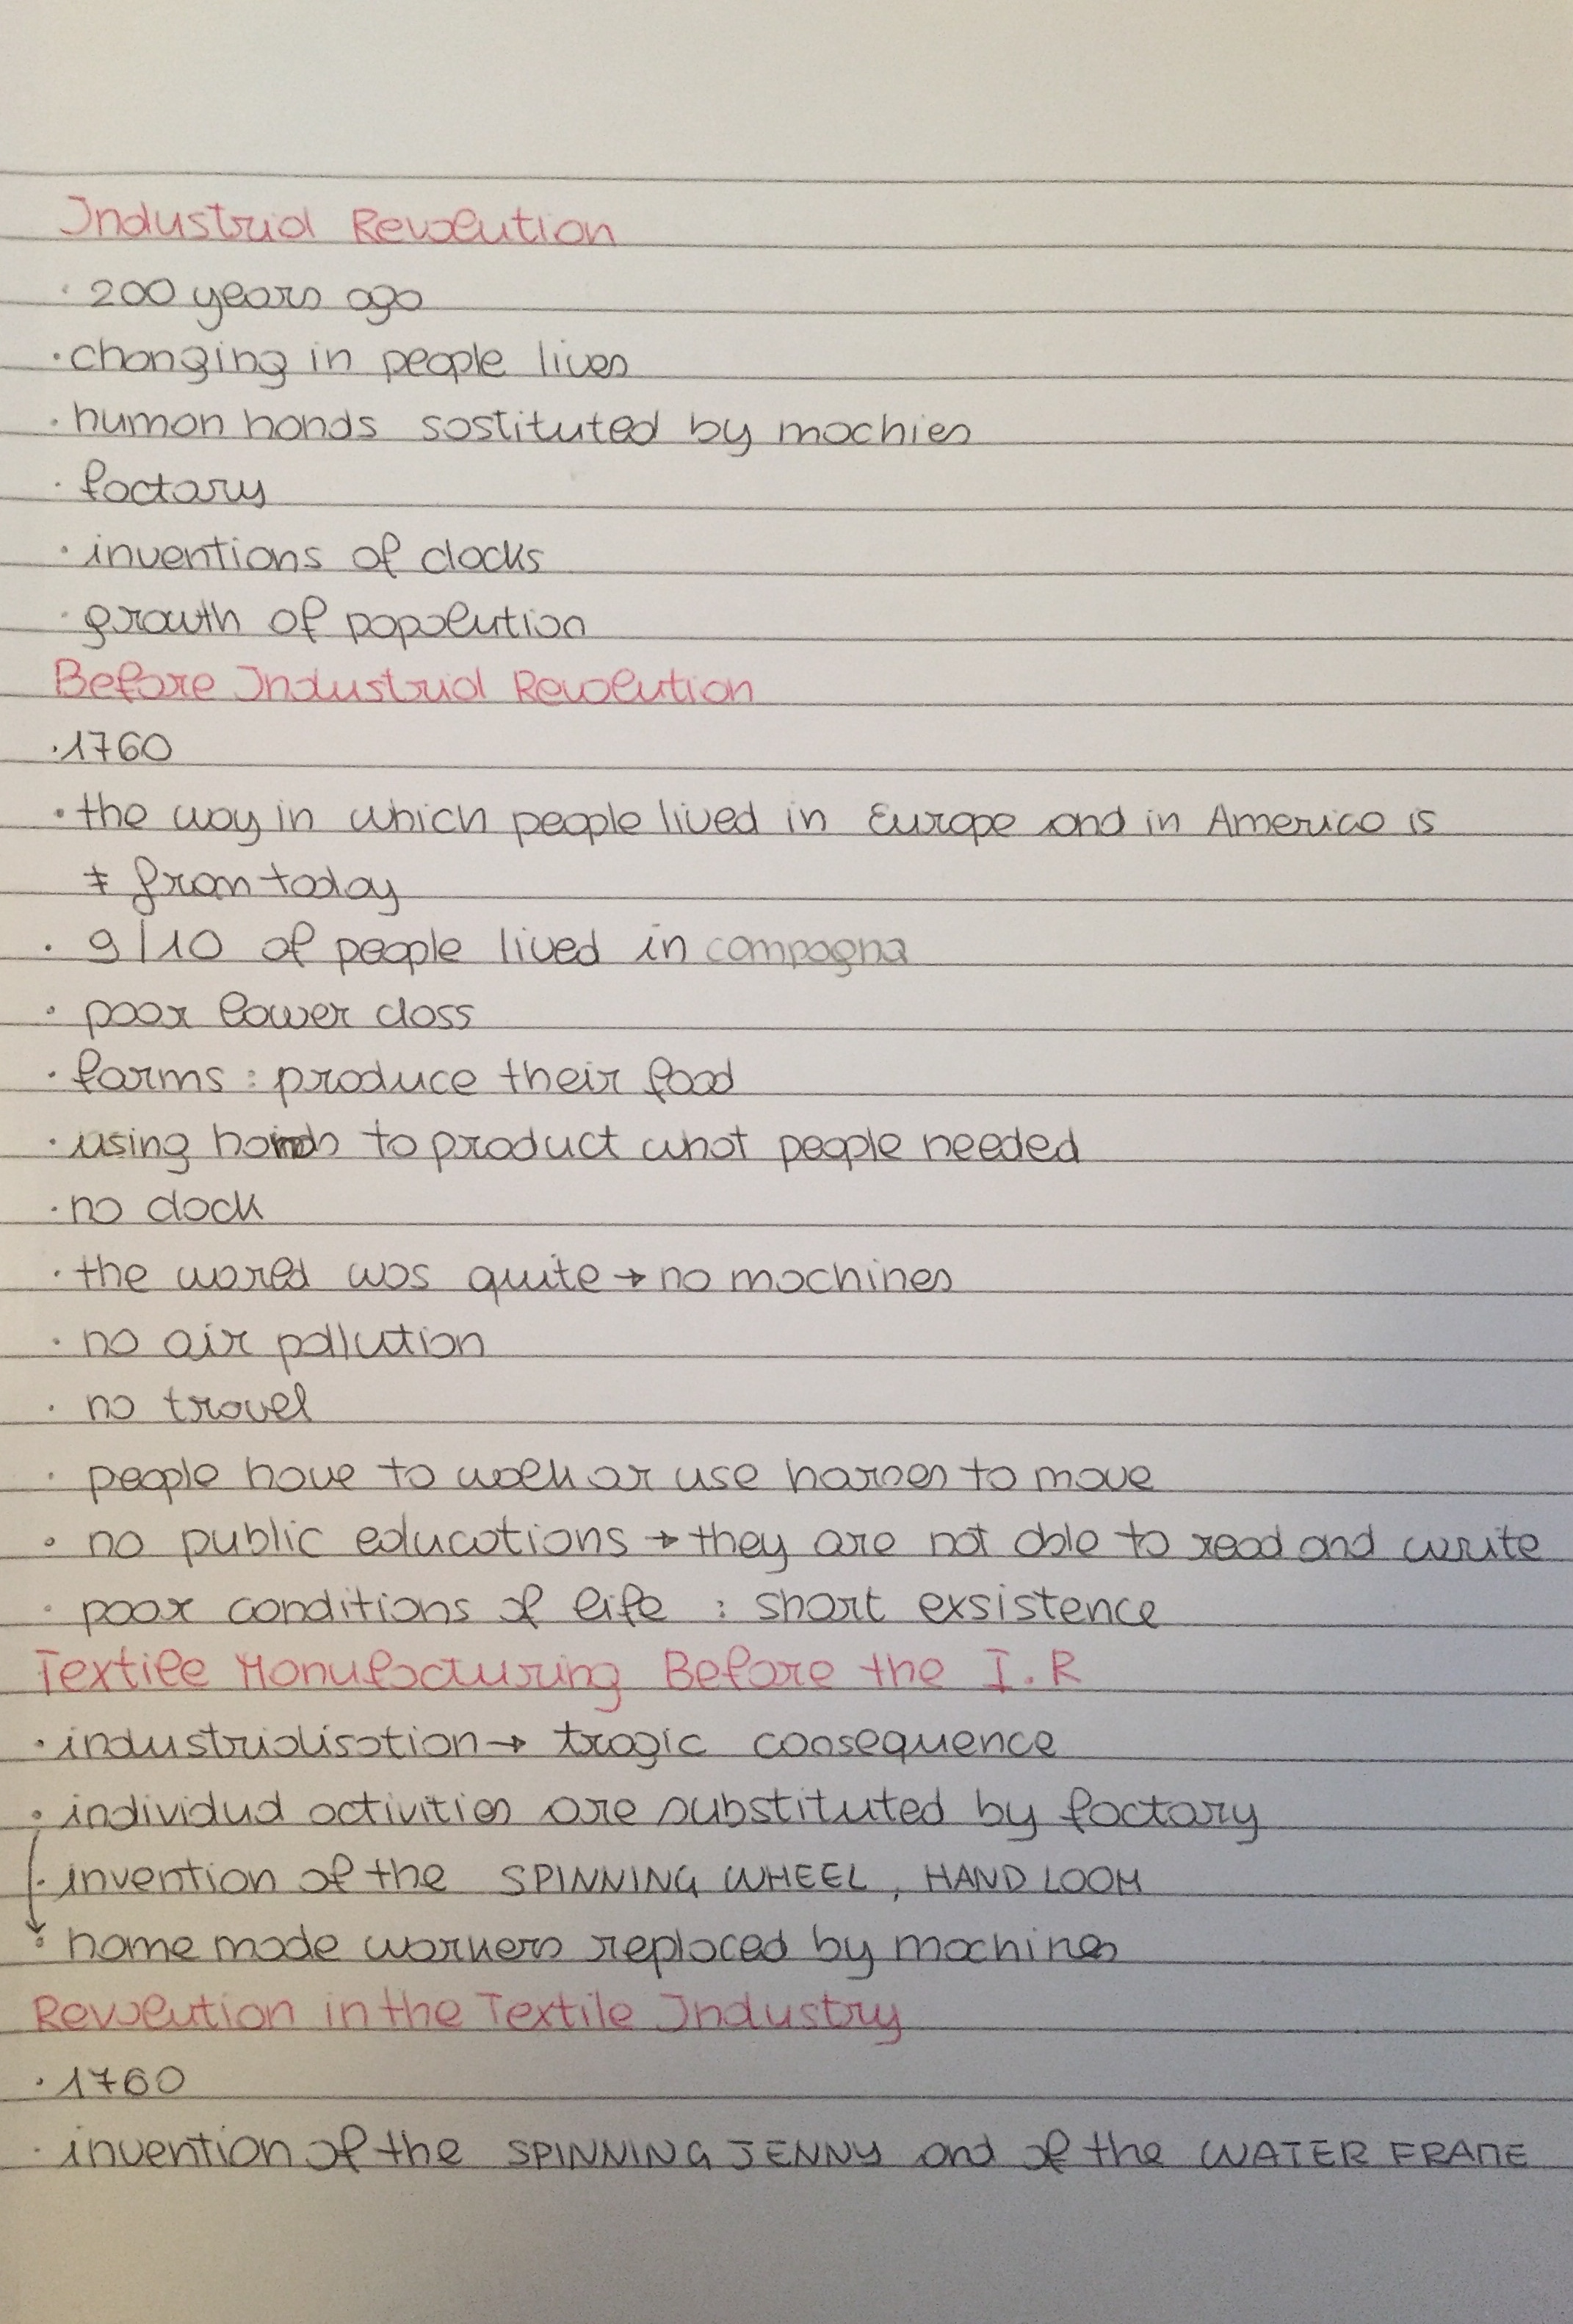 Industrial Revolution
· 200 years ago
· changing in people lives
· human hands sostituted by machies
· factory
· inventions of clocks
· growth of popolution
Before Industrial Revolution
· 1760
· the way in which people lived in Europe and in America is
≠ from today
· 9/10 of people lived in campagna
· poor lower class
· farms : produce their food
· using hands to product what people needed
· no clock
· the world was quite → no machines
· no air pollution
· no travel
· people have to walk or use horses to move
· no public educations → they are not able to read and write
· poor conditions of life : short exsistence
Textile Manufacturing Before the I.R
· industrialisation → tragic consequence
· individual activities are substituted by factory
· invention of the SPINNING WHEEL, HAND LOOM
· home made workers replaced by machines
Revolution in the Textile Industry
· 1760
· invention of the SPINNING JENNY and of the WATER FRAME